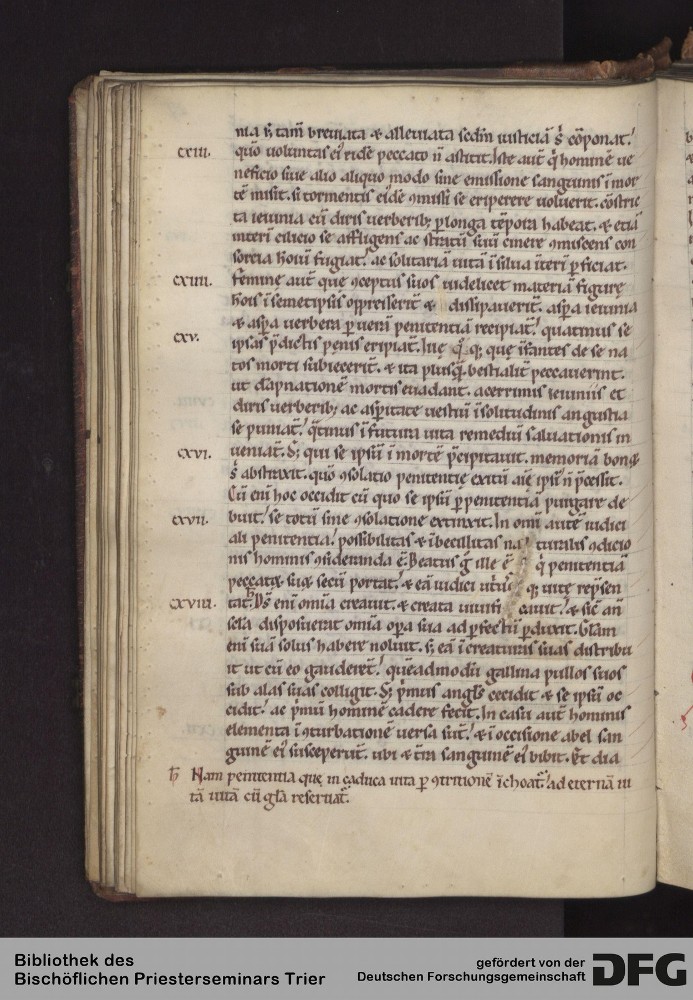 nia s; tam̄ breuiata ⁊ alleuiata scd̄m iusticiā ṡ cōponat.
cxiii. quō uoluntas ei' eidē peccato n̄ astitit. Iste aut̄ q̇ hominē ue
neficio siue alio aliquo modo sine emissione sanguinis ī mor
tē misit. si tormentis eidē ꝯmissi se eripere uoluerit. cōstric
ta ieiunia cū diris uerberib; ꝑ longa tēpora habeat. ⁊ etiā
interī cilicio se affligens ac stratū suū cinere ꝯmiscens con
sorcia hoīum fugiat. ac solitariā uitā ī silua īterī ꝑficiat.
cxiiii. Femine aut̄ que ꝯceptus suos uidelicet materiā figurę
hoīs ī semetipsis oppresserit ⁊ dissipauerit. asp̄a ieiunia
⁊ asp̄a uerbera ꝑ uerā penitentiā recipiāt. quatinus se
cxv. ipsas p̄dictis penis eripiāt. Hęc q; que īfantes de se na
tos morti subiecerīt. ⁊ ita plusq̄ bestialit̄ peccauerint.
ut dāpnationē mortis euadant. acerrimis ieiuniis et
diris uerberib; ac asp̄itate uestiū ī solitudinis angustia
se puniāt. q̄tinus ī futura uita remediū saluationis in
cxvi. ueniāt. S; qui se ipsū ī mortē p̄cipitauit. memoriā bonę
ṡ abstraxit. quō ꝯsolatio penitentie exitū aīę ipsi' n̄ p̄cessit.
Cū enī hoc occidit cū quo se ipsū ꝑ penitentiā purgare de
cxvii. buit. se totū sine ꝯsolatione extinxit. In om̄i autē iudici
ali penitentia. possibilitas ⁊ ībecillitas na turalis ꝯdicio
nis hominis ꝯsideranda ē. Beatus ġ ille ē q̇ penitentiā
peccatę suę secū portat. ⁊ eā iudici q; uitę rep̄sen
cxviii. tat. D̄s enī om̄ia creauit. ⁊ creata uiuifi cauit. ⁊ sic̄ an̄
sc̄la disposuerat om̄ia op̄a sua ad ꝑfectū ꝑduxit. Gl̄am
enī suā solus habere noluit. s; eā ī creaturis suas distribu
it ut cū eo gauderēt. quēadmodū gallina pullos suos
sub alas suas colligit. S; p̄mus angl̄s cecidit ⁊ se ipsū oc
cidit. ac p̄mū hominē cadere fecit. In casu aut̄ hominis
elementa ī ꝯturbationē uersa sūt. ⁊ ī occisione abel san
guinē ei' susceperūt. ubi ⁊ t̄ra sanguinē ei' bibit. Et dia
Nam penitentia quę in caduca uita ꝑ ꝯtritionē īchoat'. ad eternā ui
tā uitā cū gl̄a reseruat'.
Bibliothek des
Bischöflichen Priesterseminars Trier
gefördert von der
Deutschen Forschungsgemeinschaft
DFG